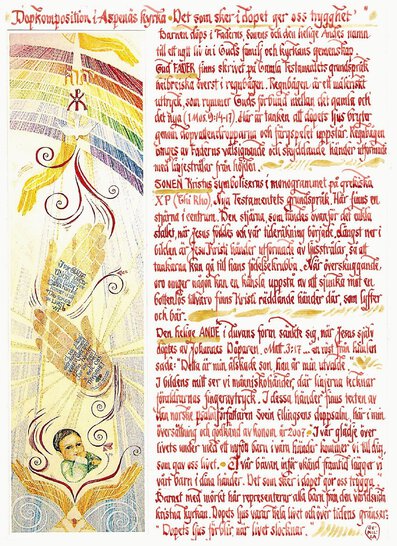 Dopkomposition i Aspenäs kyrka · Det som sker i dopet ger oss trygghet ·
Barnen döps i Faderns, Sonens och den helige Andes namn
till ett nytt liv in i Guds familj och kyrkans gemenskap.
Gud FADER finns skrivet på Gamla Testamentets grundspråk
hebreiska överst i regnbågen. Regnbågen är ett måleriskt
uttryck, som rymmer Guds förbund mellan det gamla och
det nya (1 Mos. 9:14-17). Här är tanken att dopets ljus bryter
genom dopvattendropparna och färgspelet uppstår. Regnbågen
omges av Faderns välsignande och skyddande händer utformade
med ljusstrålar från höjden.
SONEN Kristus symboliseras i monogrammet på grekiska
XP (Chi Rho), Nya Testamentets grundspråk. Här finns en
stjärna i centrum. Den stjärna, som tändes ovanför det enkla
stallet, när Jesus föddes och vår tideräkning började. Längst ner i
bilden är Jesu Kristi händer utformade av ljusstrålar, så att
tankarna kan gå till hans födelsekrubba. När överskuggande,
oro någon kan en känsla uppstå av att sjunka mot en
bottenlös tillvaro finns Kristi räddande händer där, som lyfter
och bär.
Den helige ANDE i duvans form sänkte sig, när Jesus själv
döptes av Johannes Döparen. Matt. 3:17 ... en röst från himlen
sade: "Detta är min älskade son, han är min utvalde."
I bildens mitt ser vi människohänder, där linjerna tecknar
föräldrarnas fingeravtryck. I dessa händer finns texten av
den norske psalmförfattaren Svein Ellingsens doppsalm, här i min
översättning och godkänd av honom år 2007 · I vår glädje över
livets under med ett nyfött barn i våra händer kommer vi till dig,
som gav oss livet. · I vår bävan inför okänd framtid lägger vi
vårt barn i dina händer. Det som sker i dopet gör oss trygga.
Barnet med mörkt hår representerar alla barn från den världsvida
kristna kyrkan. Dopets ljus varar hela livet och över tidens gränser:
"Dopets ljus förblir, när livet slocknar."